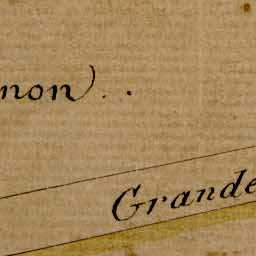 non . .
Grande